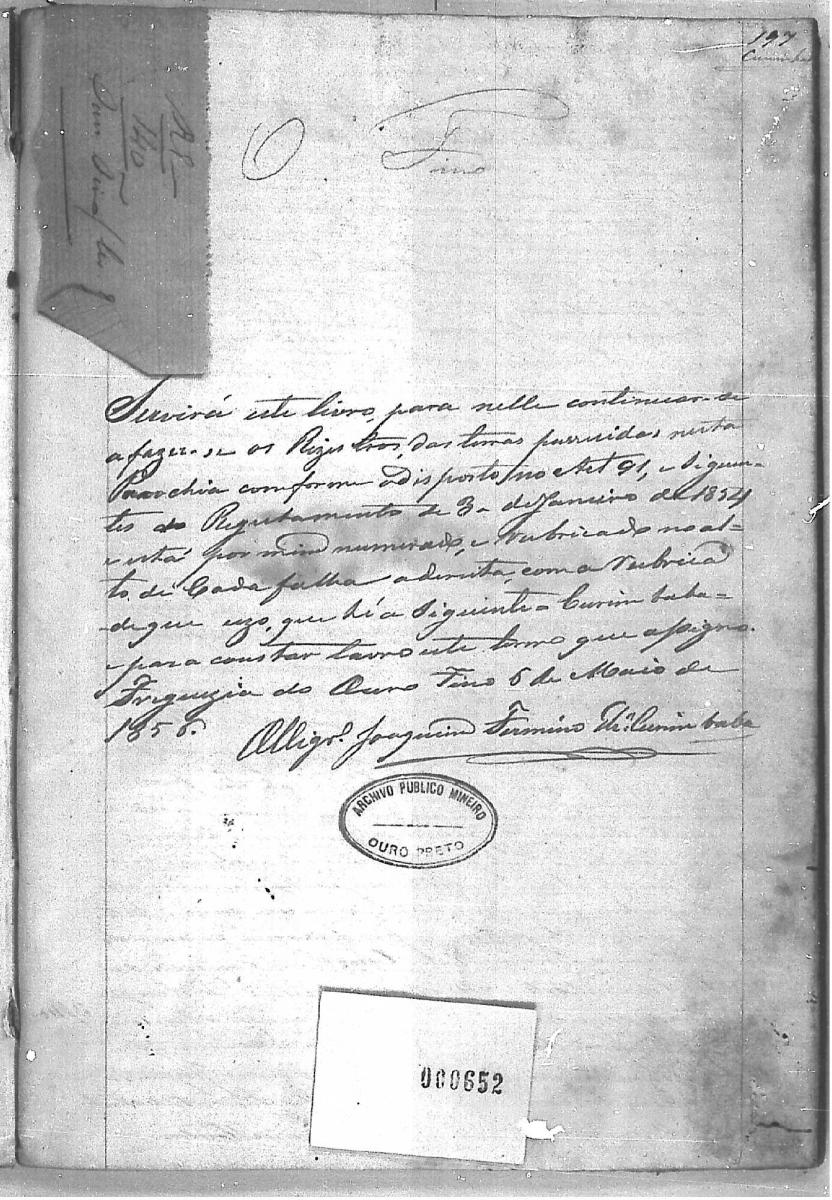 197
Curimbaba
RP
140
O Fino
Servirá este livro, para nelle continuar-se
a fazer-se os Rizistros, das terras pussuidas nesta
Parochia comforme o disposto, no Art 91, e Siguin-
tes do Regulamento de 3o de Janeiro de 1854
e está por mim numerado, e rubricado no al-
to de Cada folha adireita, com a rubrica
de que uzo, que hé a Siguinte = Curimbaba =
e para constar lavro este termo que assigno.
Freguezia do Ouro Fino 6 de Maio de
1856.
O Vigr.o Joaquim Fermino Curimbaba
ARCHIVO PUBLICO MINEIRO
OURO PRETO
000652